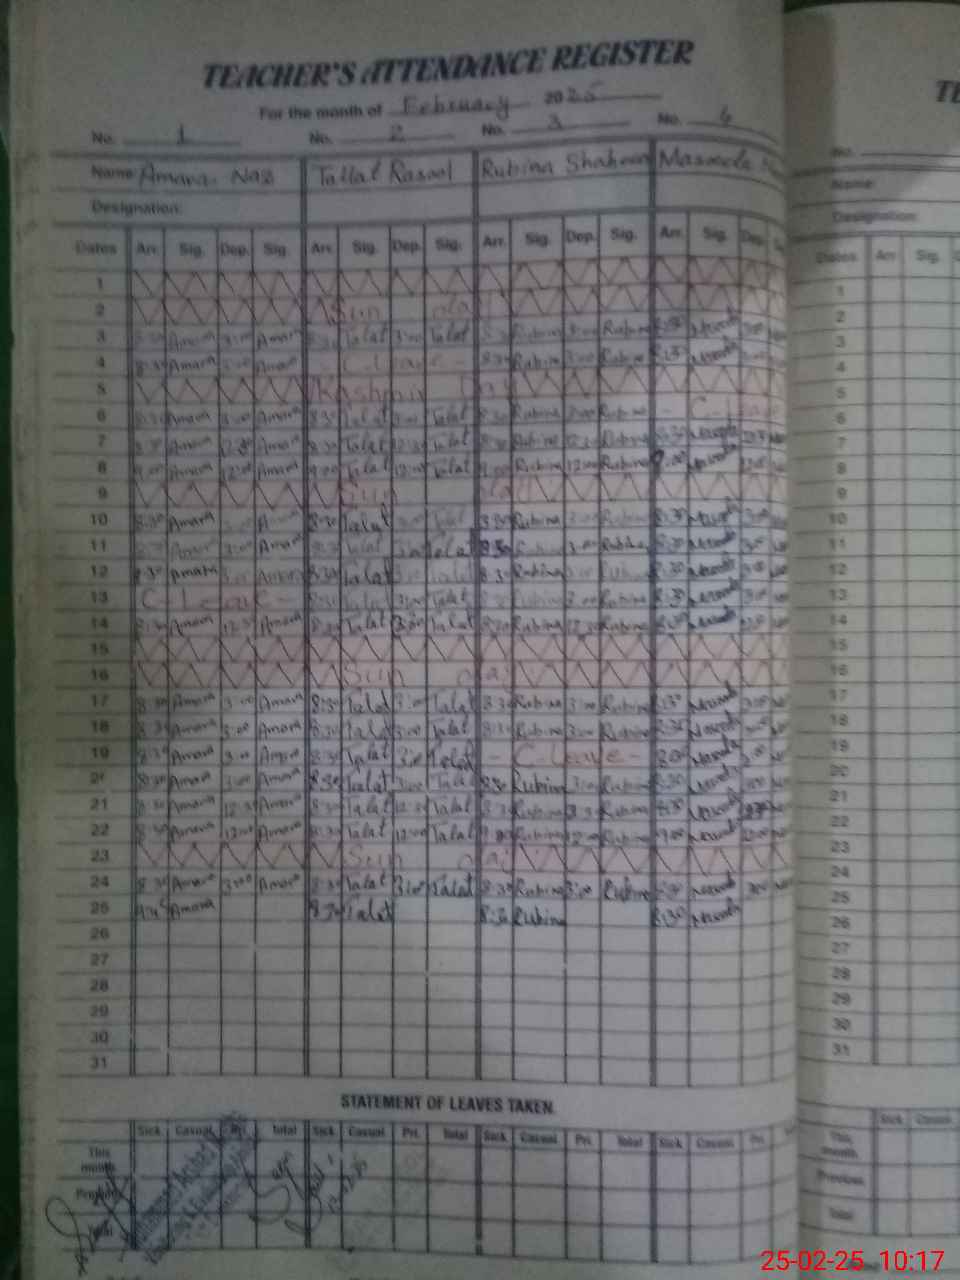 TEACHER'S ATTENDANCE REGISTER
For the month of February 2025
No. 1 No. 2 No. 3 No. 4
Name: Amara Naz Tallat Rasool Rubina Shaheen Masooda
Designation:
Dates Arr. Sig. Dep. Sig. Arr. Sig. Dep. Sig. Arr. Sig. Dep. Sig. Arr. Sig. Dep.
1
2 Sun day
3 8:30 Amara 3:00 Amara 8:30 Talat 3:00 Talat 8:30 Rubina 3:00 Rubina 8:30 Masooda 3:00
4 8:30 Amara 3:00 Amara - C Leave - 8:30 Rubina 3:00 Rubina 8:30 Masooda
5 Kashmir Day
6 8:30 Amara 3:00 Amara 8:30 Talat 3:00 Talat 8:30 Rubina 3:00 Rubina - C-Leave
7 8:30 Amara 12:30 Amara 8:30 Talat 12:30 Talat 8:30 Rubina 12:30 Rubina 8:30 Masooda
8 9:00 Amara 12:00 Amara 9:00 Talat 12:00 Talat 9:00 Rubina 12:00 Rubina 9:00 Masooda 12:00
9 Sun day
10 8:30 Amara 3:00 8:30 Talat 3:00 Talat 8:30 Rubina 3:00 Rubina 8:30 Masooda 3:00
11 Amara 3:00 Amara 8:30 Talat 3:00 Talat 8:30 Rubina 3:00 Rubina 8:30 Masooda 3:00
12 8:30 Amara 3:00 Amara 8:30 Talat 3:00 Talat 8:30 Rubina 3:00 Rubina 8:30 Masooda 3:00
13 C-Leave - 8:30 Talat 3:00 Talat 8:30 Rubina 3:00 Rubina 8:30 Masooda 3:00
14 8:30 Amara 12:30 Amara 8:30 Talat 3:00 Talat 8:30 Rubina 12:30 Rubina 8:30 Masooda
15
16 Sun day
17 8:30 Amara 3:00 Amara 8:30 Talat 3:00 Talat 8:30 Rubina 3:00 Rubina 8:30 Masooda 3:00
18 8:30 Amara 3:00 Amara 8:30 Talat 3:00 Talat 8:30 Rubina 3:00 Rubina 8:30 Masooda 3:00
19 8:30 Amara 3:00 Amara 8:30 Talat 3:00 Talat - C-Leave - 8:30 Masooda 3:00
20 8:30 Amara 3:00 Amara 8:30 Talat 3:00 Talat 8:30 Rubina 3:00 Rubina 8:30 Masooda 3:00
21 8:30 Amara 12:30 Amara 8:30 Talat 12:30 Talat 8:30 Rubina 12:30 Rubina 8:30 Masooda 12:30
22 8:30 Amara 12:00 Amara 8:30 Talat 12:00 Talat 9:00 Rubina 12:00 Rubina 9:00 Masooda 12:00
23 Sun day
24 8:30 Amara 3:00 Amara 8:30 Talat 3:00 Talat 8:30 Rubina 3:00 Rubina 8:30 Masooda 3:00
25 Amara 8:30 Talat 8:30 Rubina 8:30 Masooda
26
27
28
29
30
31
STATEMENT OF LEAVES TAKEN.
Sick Casual Pri. Total Sick Casual Pri. Total Sick Casual Pri. Total Sick Casual Pri.
This month
Previous
Total
No.
Name:
Designation:
Dates Arr. Sig.
1
2
3
4
5
6
7
8
9
10
11
12
13
14
15
16
17
18
19
20
21
22
23
24
25
26
27
28
29
30
31
Sick Casual
This month
Previous
Total
25-02-25 10:17